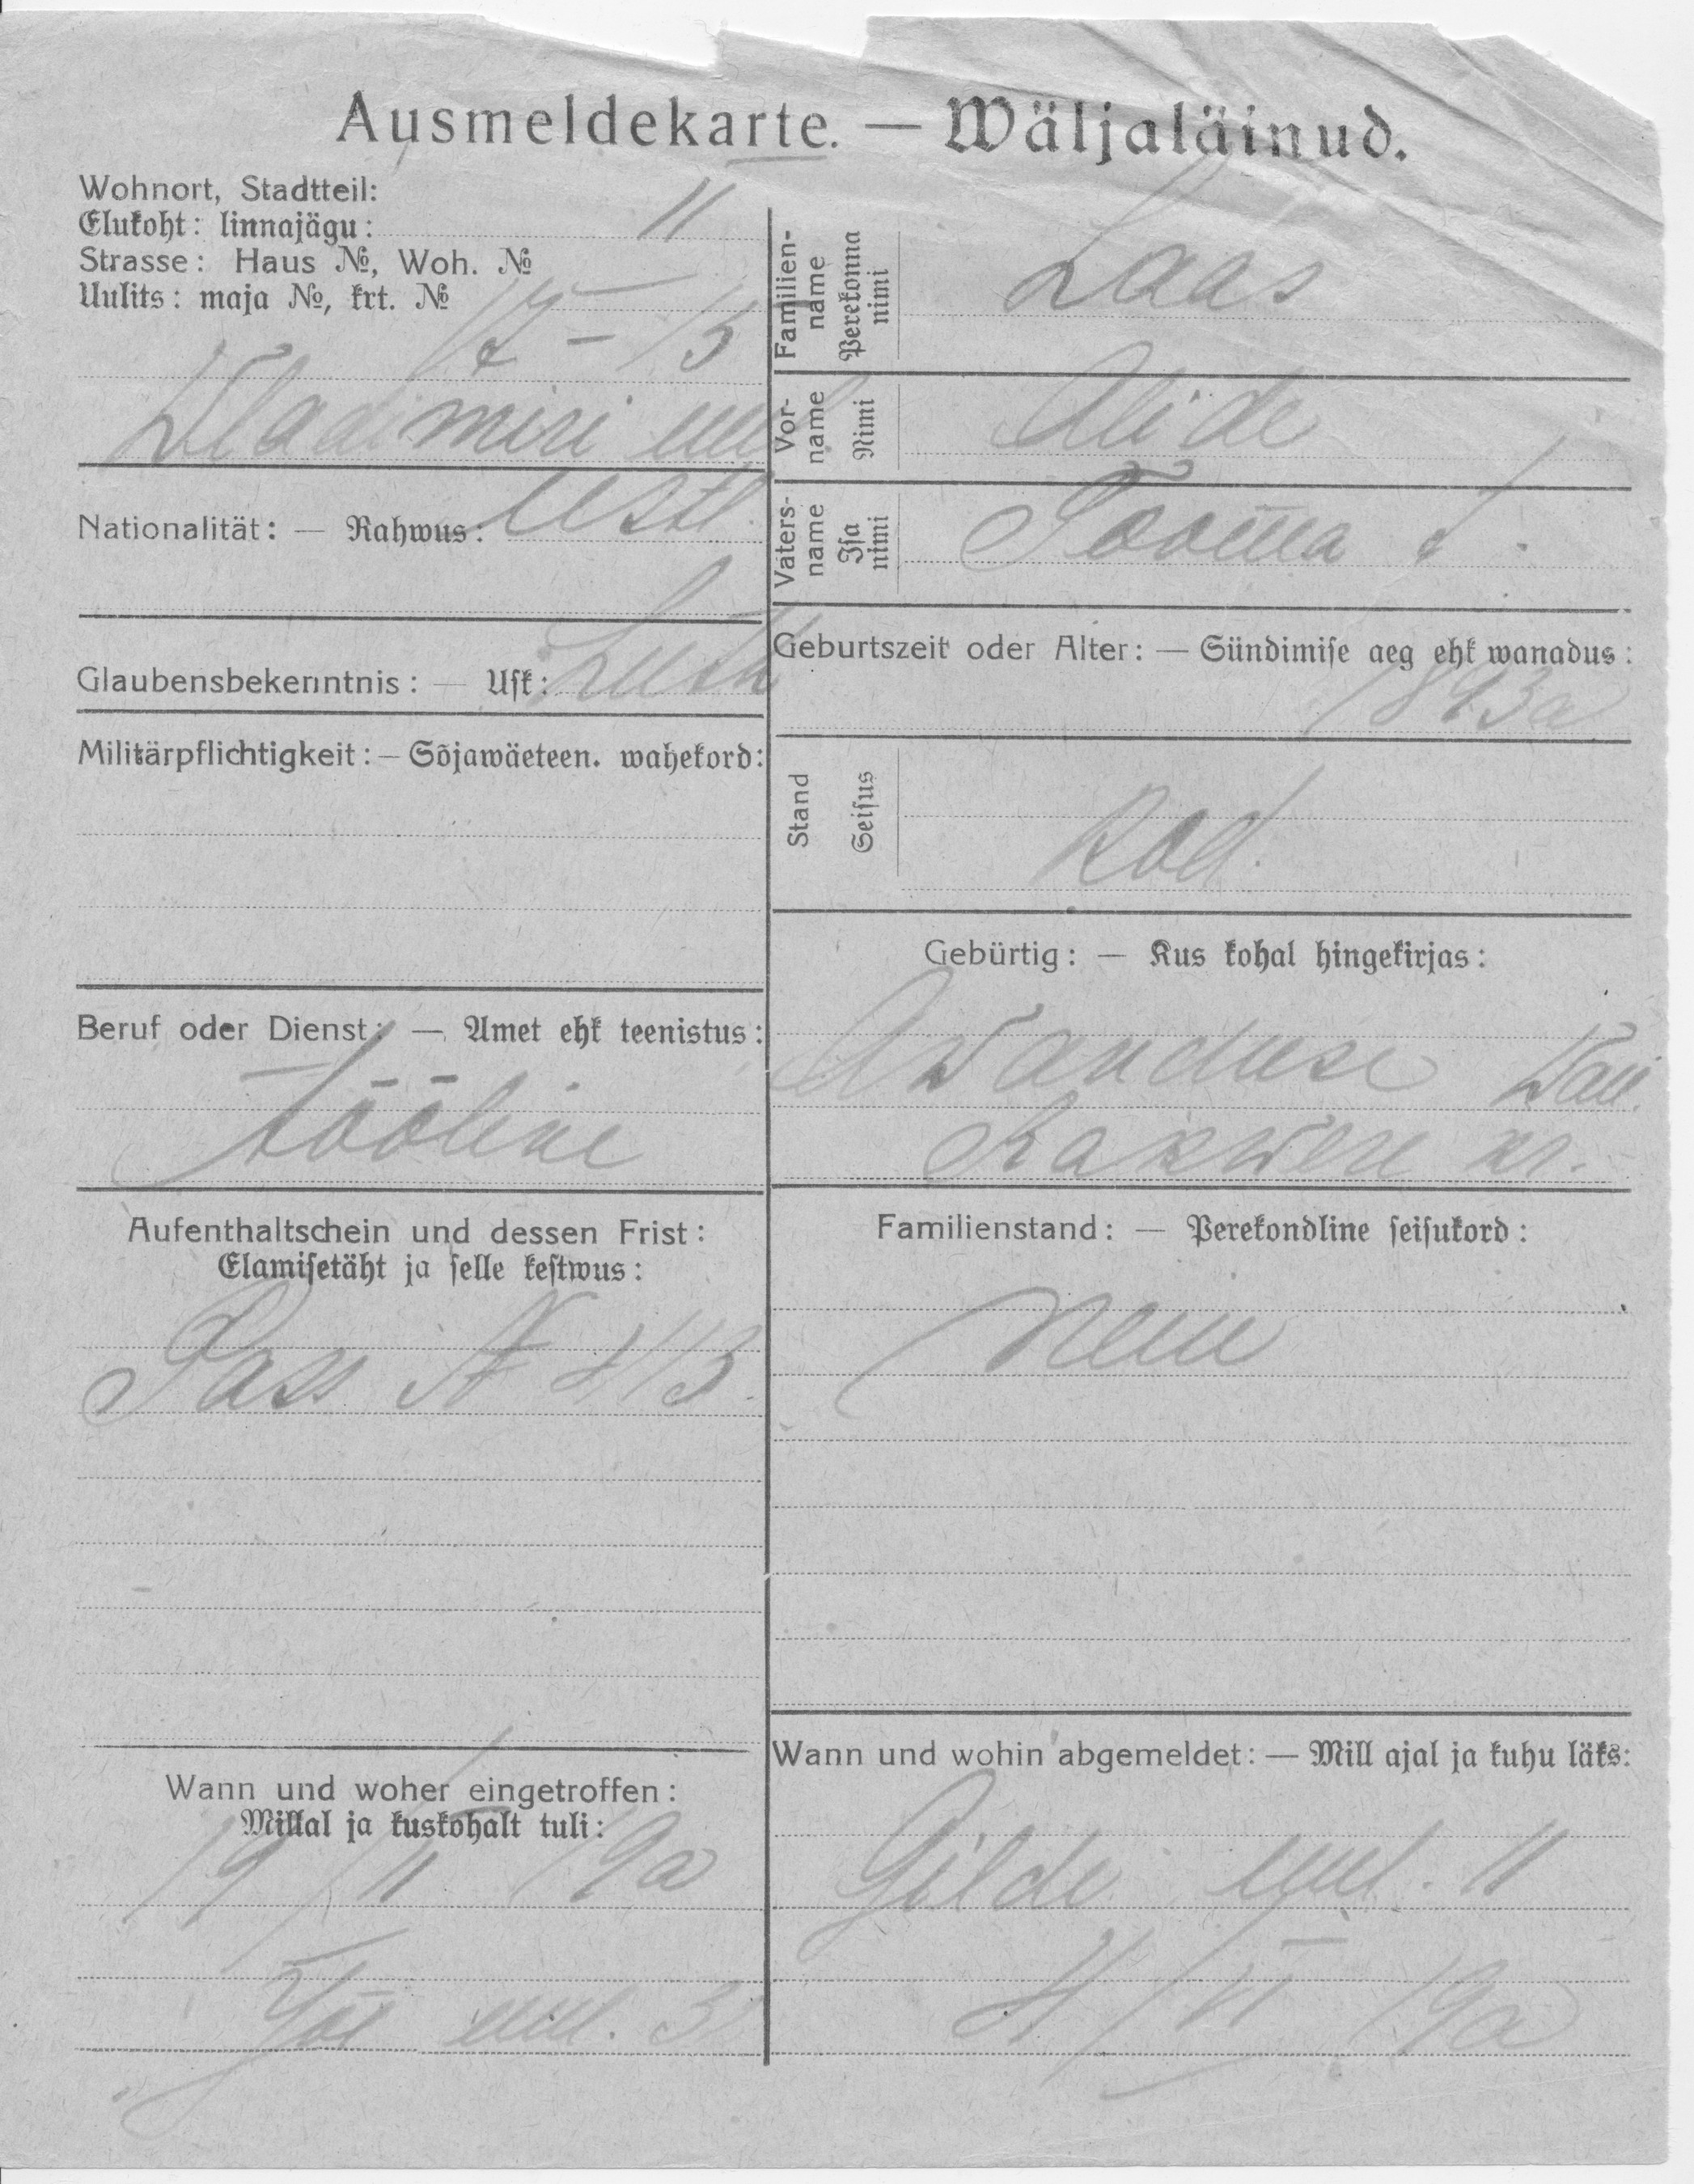 Ausmeldekarte. — Wäljaläinud.
Wohnort, Stadtteil:
Elukoht: linnajägu: II
Strasse: Haus №, Woh. №
Uulits: maja №, krt. №
17 – 13
Wladimiri uul
Nationalität: — Rahwus: Estl.
Glaubensbekenntnis: — Usk: Luth
Militärpflichtigkeit: — Sõjawäeteen. wahekord:
Beruf oder Dienst: — Amet ehk teenistus:
tööline
Aufenthaltschein und dessen Frist:
Elamisetäht ja selle kestwus:
Pass №
Wann und woher eingetroffen:
Millal ja kuskohalt tuli:
19/II 19a
uul. 3
Familien-name Perekonna nimi Laas
Vor-name Nimi Alide
Vaters-name Isa nimi Tooma t.
Geburtszeit oder Alter: — Sündimise aeg ehk wanadus:
1893a
Stand Seisus
Gebürtig: — Kus kohal hingekirjas:
Awanduse wall.
Rakwere kr.
Familienstand: — Perekondline seisukord:
Neiu
Wann und wohin abgemeldet: — Mill ajal ja kuhu läks:
Gilde uul. 11
/VI 19a